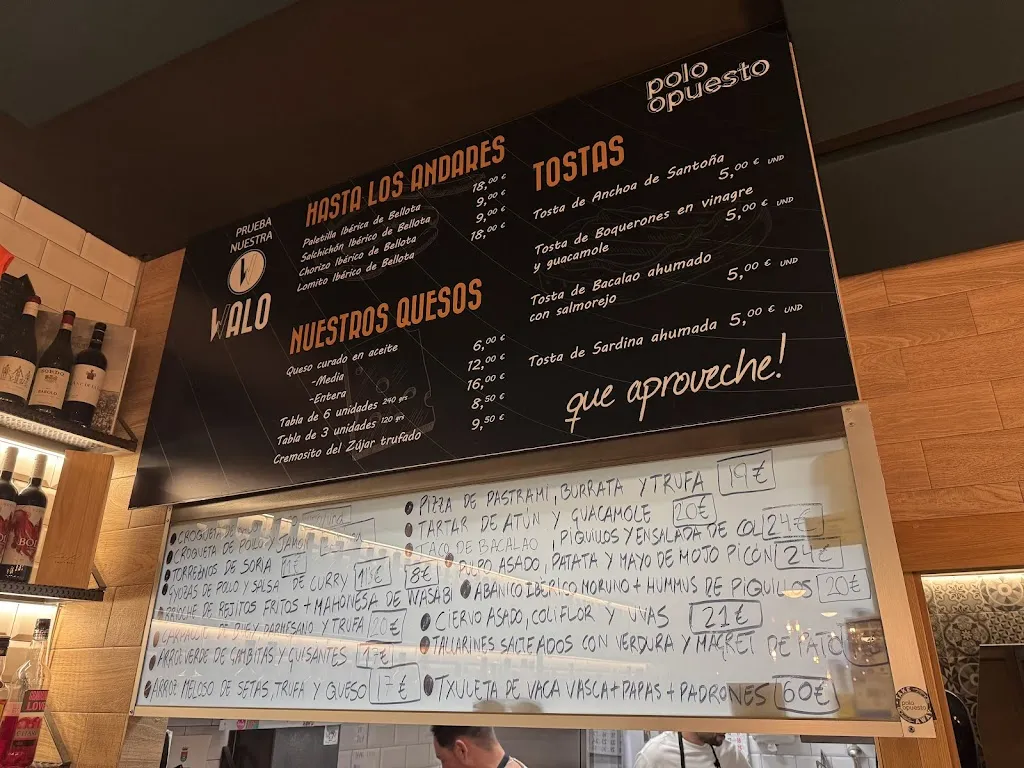 polo
opuesto
PRUEBA
NUESTRA
WALO
HASTA LOS ANDARES
Paletilla Ibérica de Bellota 18,00 €
Salchichón Ibérico de Bellota 9,00 €
Chorizo Ibérico de Bellota 9,00 €
Lomito Ibérico de Bellota 18,00 €
NUESTROS QUESOS
Queso curado en aceite
-Media 6,00 €
-Entera 12,00 €
Tabla de 6 unidades 240 grs 16,00 €
Tabla de 3 unidades 120 grs 8,50 €
Cremosito del Zújar trufado 9,50 €
TOSTAS
Tosta de Anchoa de Santoña 5,00 € UND
Tosta de Boquerones en vinagre
y guacamole 5,00 € UND
Tosta de Bacalao ahumado
con salmorejo 5,00 € UND
Tosta de Sardina ahumada 5,00 € UND
que aproveche!
CROQUETA DE
CROQUETA DE POLLO Y JAMÓN
TORREZNOS DE SORIA
GYOZAS DE POLLO Y SALSA DE CURRY 8€
DE REJITOS FRITOS + MAHONESA DE WASABI
CARPACCIO DE BUEY, PARMESANO Y TRUFA 20€
ARROZ VERDE DE GAMBITAS Y GUISANTES 17€
ARROZ MELOSO DE SETAS, TRUFA Y QUESO 17€
PIZZA DE PASTRAMI, BURRATA Y TRUFA 19€
TARTAR DE ATÚN Y GUACAMOLE 20€
TACO DE BACALAO, PIQUILLOS Y ENSALADA DE COL 24€
PULPO ASADO, PATATA Y MAYO DE MOJO PICÓN 24€
ABANICO IBÉRICO MORUNO + HUMMUS DE PIQUILLOS 20€
CIERVO ASADO, COLIFLOR Y UVAS 21€
TALLARINES SALTEADOS CON VERDURA Y MAGRET DE PATO
TXULETA DE VACA VASCA + PAPAS + PADRONES 60€
polo
opuesto